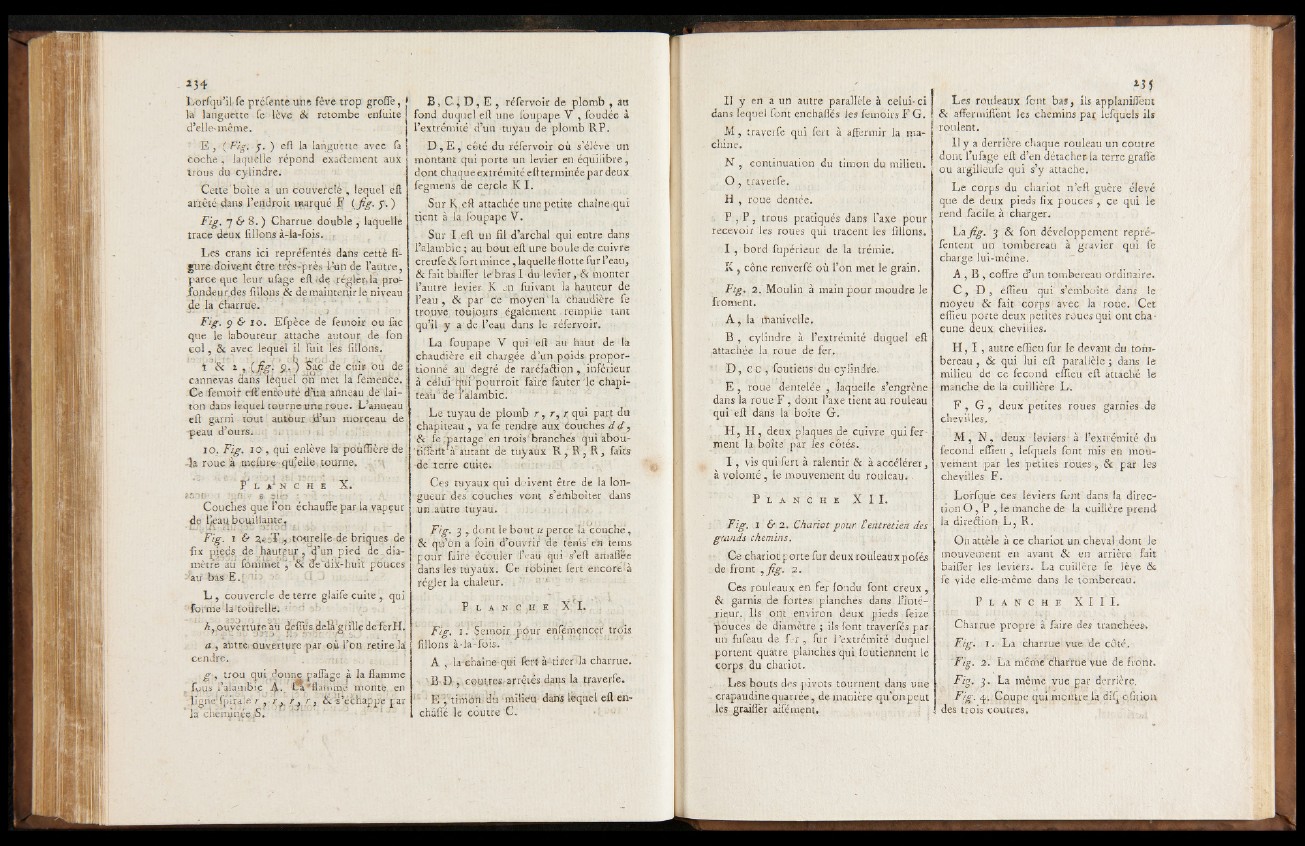 234
Lorſqu'il ſe préſente une fève trop groſſe,
la languette ſe lève & retombe enſuite
d'elle-même.
E, (Fig. 5.) eſt la languette avec ſa
coche, laquelle répond exactement aux
trous du cylindre.
Cette boîte a un couvercle, lequel eſt
arrêté dans l'endroit marqué F (fig. 5.)
Fig. 7 & 8.) Charrue double, laquelle
trace deux ſillons à-la-fois.
Les crans ici repréſentés dans cette fi-
gure doivent être très-près l'un de l'autre,
parce que leur uſage eſt de régler la pro-
fondeur des ſillons & de maintenir le niveau
de la charrue.
Fig. 9 & 10. Eſpèce de ſemoir ou ſac
que le laboureur attache autour de ſon
col, & avec lequel il ſuit les ſillons.
1 & 2, (fig. 9.) Sac de cuir ou de
cannevas dans lequel on met la ſemence.
Ce ſemoir eſt entouré d'un anneau de lai-
ton dans lequel tourne une roue. L'anneau
eſt garni tout autour d'un morceau de
peau d'ours.
10. Fig. 10, qui enlève la pouſſière de
la roue à meſure qu'elle tourne.
PLANCHE X.
Couches que l'on échauffe par la vapeur
de l'eau bouillante.
Fig. 1 & 2. T, tourelle de briques de
ſix pieds de hauteur, d'un pied de dia-
mètre au ſommet, & de dix-huit pouces
au bas E.
L, couvercle de terre glaiſe cuite, qui
forme la tourelle.
h, ouverture au deſſus de la grille de fer H.
a, autre ouverture par où l'on retire la
cendre.
g, trou qui donne paſſage à la flamme
ſous l'alambic A. La flamme monte en
ligne ſpirale r, r, r, r, & s'échappe par
la cheminée S.
B, C, D, E, réſervoir de plomb, au
fond duquel eſt une ſoupape V, ſoudée à
l'extrémité d'un tuyau de plomb RP.
D, E, côté du réſervoir où s'élève un
montant qui porte un levier en équilibre,
dont chaque extrémité eſt terminée par deux
ſegmens de cercle K I.
Sur K eſt attachée une petite chaîne qui
tient à la ſoupape V.
Sur I eſt un fil d'archal qui entre dans
l'alambic; au bout eſt une boule de cuivre
creuſe & fort mince, laquelle flotte ſur l'eau,
& fait baiſſer le bras I du levier, & monter
l'autre levier K en ſuivant la hauteur de
l'eau, & par ce moyen la chaudière ſe
trouve toujours également remplie tant
qu'il y a de l'eau dans le réſervoir.
La ſoupape V qui eſt au haut de la
chaudière eſt chargée d'un poids propor-
tionné au degré de raréfaction, inférieur
à celui qui pourroit faire ſauter le chapi-
teau de l'alambic.
Le tuyau de plomb r, r, r qui part du
chapiteau, va ſe rendre aux couches d d,
& ſe partage en trois branches qui abou-
tiſſent à autant de tuyaux R, R, R, faits
de terre cuite.
Ces tuyaux qui doivent être de la lon-
gueur des couches vont s'emboîter dans
un autre tuyau.
Fig. 3, dont le bout u perce la couche,
& qu'on a ſoin d'ouvrir de tems en tems
pour faire écouler l'eau qui s'eſt amaſſée
dans les tuyaux. Ce robinet ſert encore à
régler la chaleur.
PLANCHE XI.
Fig. 1. Semoir pour enſemencer trois
ſillons à-la-fois.
A, la chaîne qui ſert à tirer la charrue.
B D, coutres arrêtés dans la traverſe.
E, timon du milieu dans lequel eſt en-
châſſé le coutre C.
235
Il y en a un autre parallèle à celui-ci
dans lequel ſont enchaſſés les ſemoirs F G.
M, traverſe qui ſert à affermir la ma-
chine.
N, continuation du timon du milieu.
O, traverſe.
H, roue dentée.
P, P, trous pratiqués dans l'axe pour
recevoir les roues qui tracent les ſillons.
I, bord ſupérieur de la trémie.
K, cône renverſé où l'on met le grain.
Fig. 2. Moulin à main pour moudre le
froment.
A, la manivelle.
B, cylindre à l'extrémité duquel eſt
attachée la roue de fer.
D, c c, ſoutiens du cylindre.
E, roue dentelée, laquelle s'engrène
dans la roue F, dont l'axe tient au rouleau
qui eſt dans la boîte G.
H, H, deux plaques de cuivre qui fer-
ment la boîte par les côtés.
I, vis qui ſert à ralentir & à accélérer,
à volonté, le mouvement du rouleau.
PLANCHE XII.
Fig. 1 & 2. Chariot pour l'entretien des
grands chemins.
Ce chariot porte ſur deux rouleaux poſés
de front, fig. 2.
Ces rouleaux en fer fondu ſont creux,
& garnis de fortes planches dans l'inté-
rieur. Ils ont environ deux pieds ſeize
pouces de diamètre; ils ſont traverſés par
un fuſeau de fer, ſur l'extrémité duquel
portent quatre planches qui ſoutiennent le
corps du chariot.
Les bouts des pivots tournent dans une
crapaudine quarrée, de manière qu'on peut
les graiſſer aiſément.
Les rouleaux ſont bas, ils applaniſſent
& affermiſſent les chemins par leſquels ils
roulent.
Il y a derrière chaque rouleau un coutre
dont l'uſage eſt d'en détacher la terre graſſe
ou argilleuſe qui s'y attache.
Le corps du chariot n'eſt guère élevé
que de deux pieds ſix pouces, ce qui le
rend facile à charger.
La fig. 3 & ſon développement repré-
ſentent un tombereau à gravier qui ſe
charge lui-même.
A, B, coffre d'un tombereau ordinaire.
C, D, eſſieu qui s'emboîte dans le
moyeu & fait corps avec la roue. Cet
eſſieu porte deux petites roues qui ont cha-
cune deux chevilles.
H, I, autre eſſieu ſur le devant du tom-
bereau, & qui lui eſt parallèle; dans le
milieu de ce ſecond eſſieu eſt attaché le
manche de la cuillière L.
F, G, deux petites roues garnies de
chevilles.
M, N, deux leviers à l'extrémité du
ſecond eſſieu, leſquels ſont mis en mou-
vement par les petites roues, & par les
chevilles F.
Lorſque ces leviers ſont dans la direc-
tion O, P, le manche de la cuillère prend
la direction L, R.
On attèle à ce chariot un cheval dont le
mouvement en avant & en arrière fait
baiſſer les leviers. La cuillère ſe lève &
ſe vide elle-même dans le tombereau.
PLANCHE XIII.
Charrue propre à faire des tranchées.
Fig. 1. La charrue vue de côté.
Fig. 2. La même charrue vue de front.
Fig. 3. La même vue par derrière.
Fig. 4. Coupe qui montre la diſpoſition
des trois coutres.